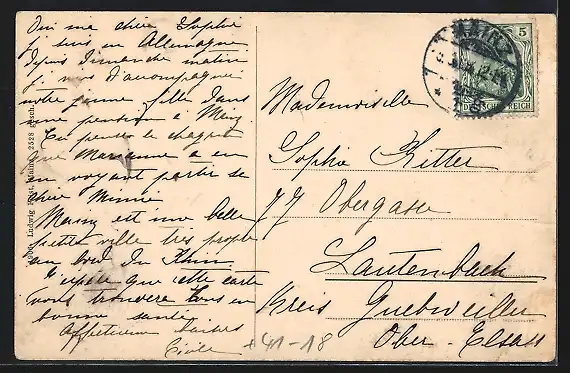 Oui ma chère Sophie
je suis en Allemagne
depuis dimanche matin
j'ai accompagné
notre jeune fille dans
une pension à
Tu penses le chagrin
que Marianne a eu
en voyant partir sa
chère Minnie
est une belle
petite ville très propre
au bord du Rhin
J'espère que cette carte
vous trouvera tous en
bonne santé
Affectueux baisers
Ludwig Mainz 2528
Mademoiselle
Sophie Ritter
77 Obergasse
Lautenbach
Kreis Guebwiller
Ober-Elsass
*41-18
MAINZ
5
DEUTSCHES REICH